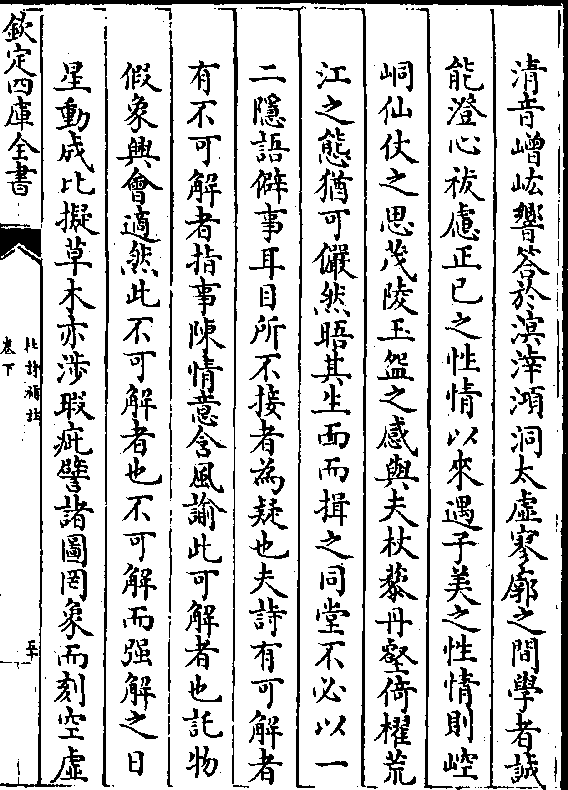 清音嶒峵響答於溟涬澒洞太虛寥廓之間學者誠
能澄心祓慮正已之性情以來遇子美之性情則崆
峒仙仗之思茂陵玉盌之感與夫杖藜丹壑倚櫂荒
江之態猶可儼然晤其生面而揖之同堂不必以一
二隱語僻事耳目所不接者為疑也夫詩有可解者
有不可解者指事陳情意含風諭此可解者也託物
假象興會適然此不可解者也不可解而强解之日
星動成比擬草木亦涉瑕疵譬諸圖罔象而刻空虛
欽定四庫全書
卷下